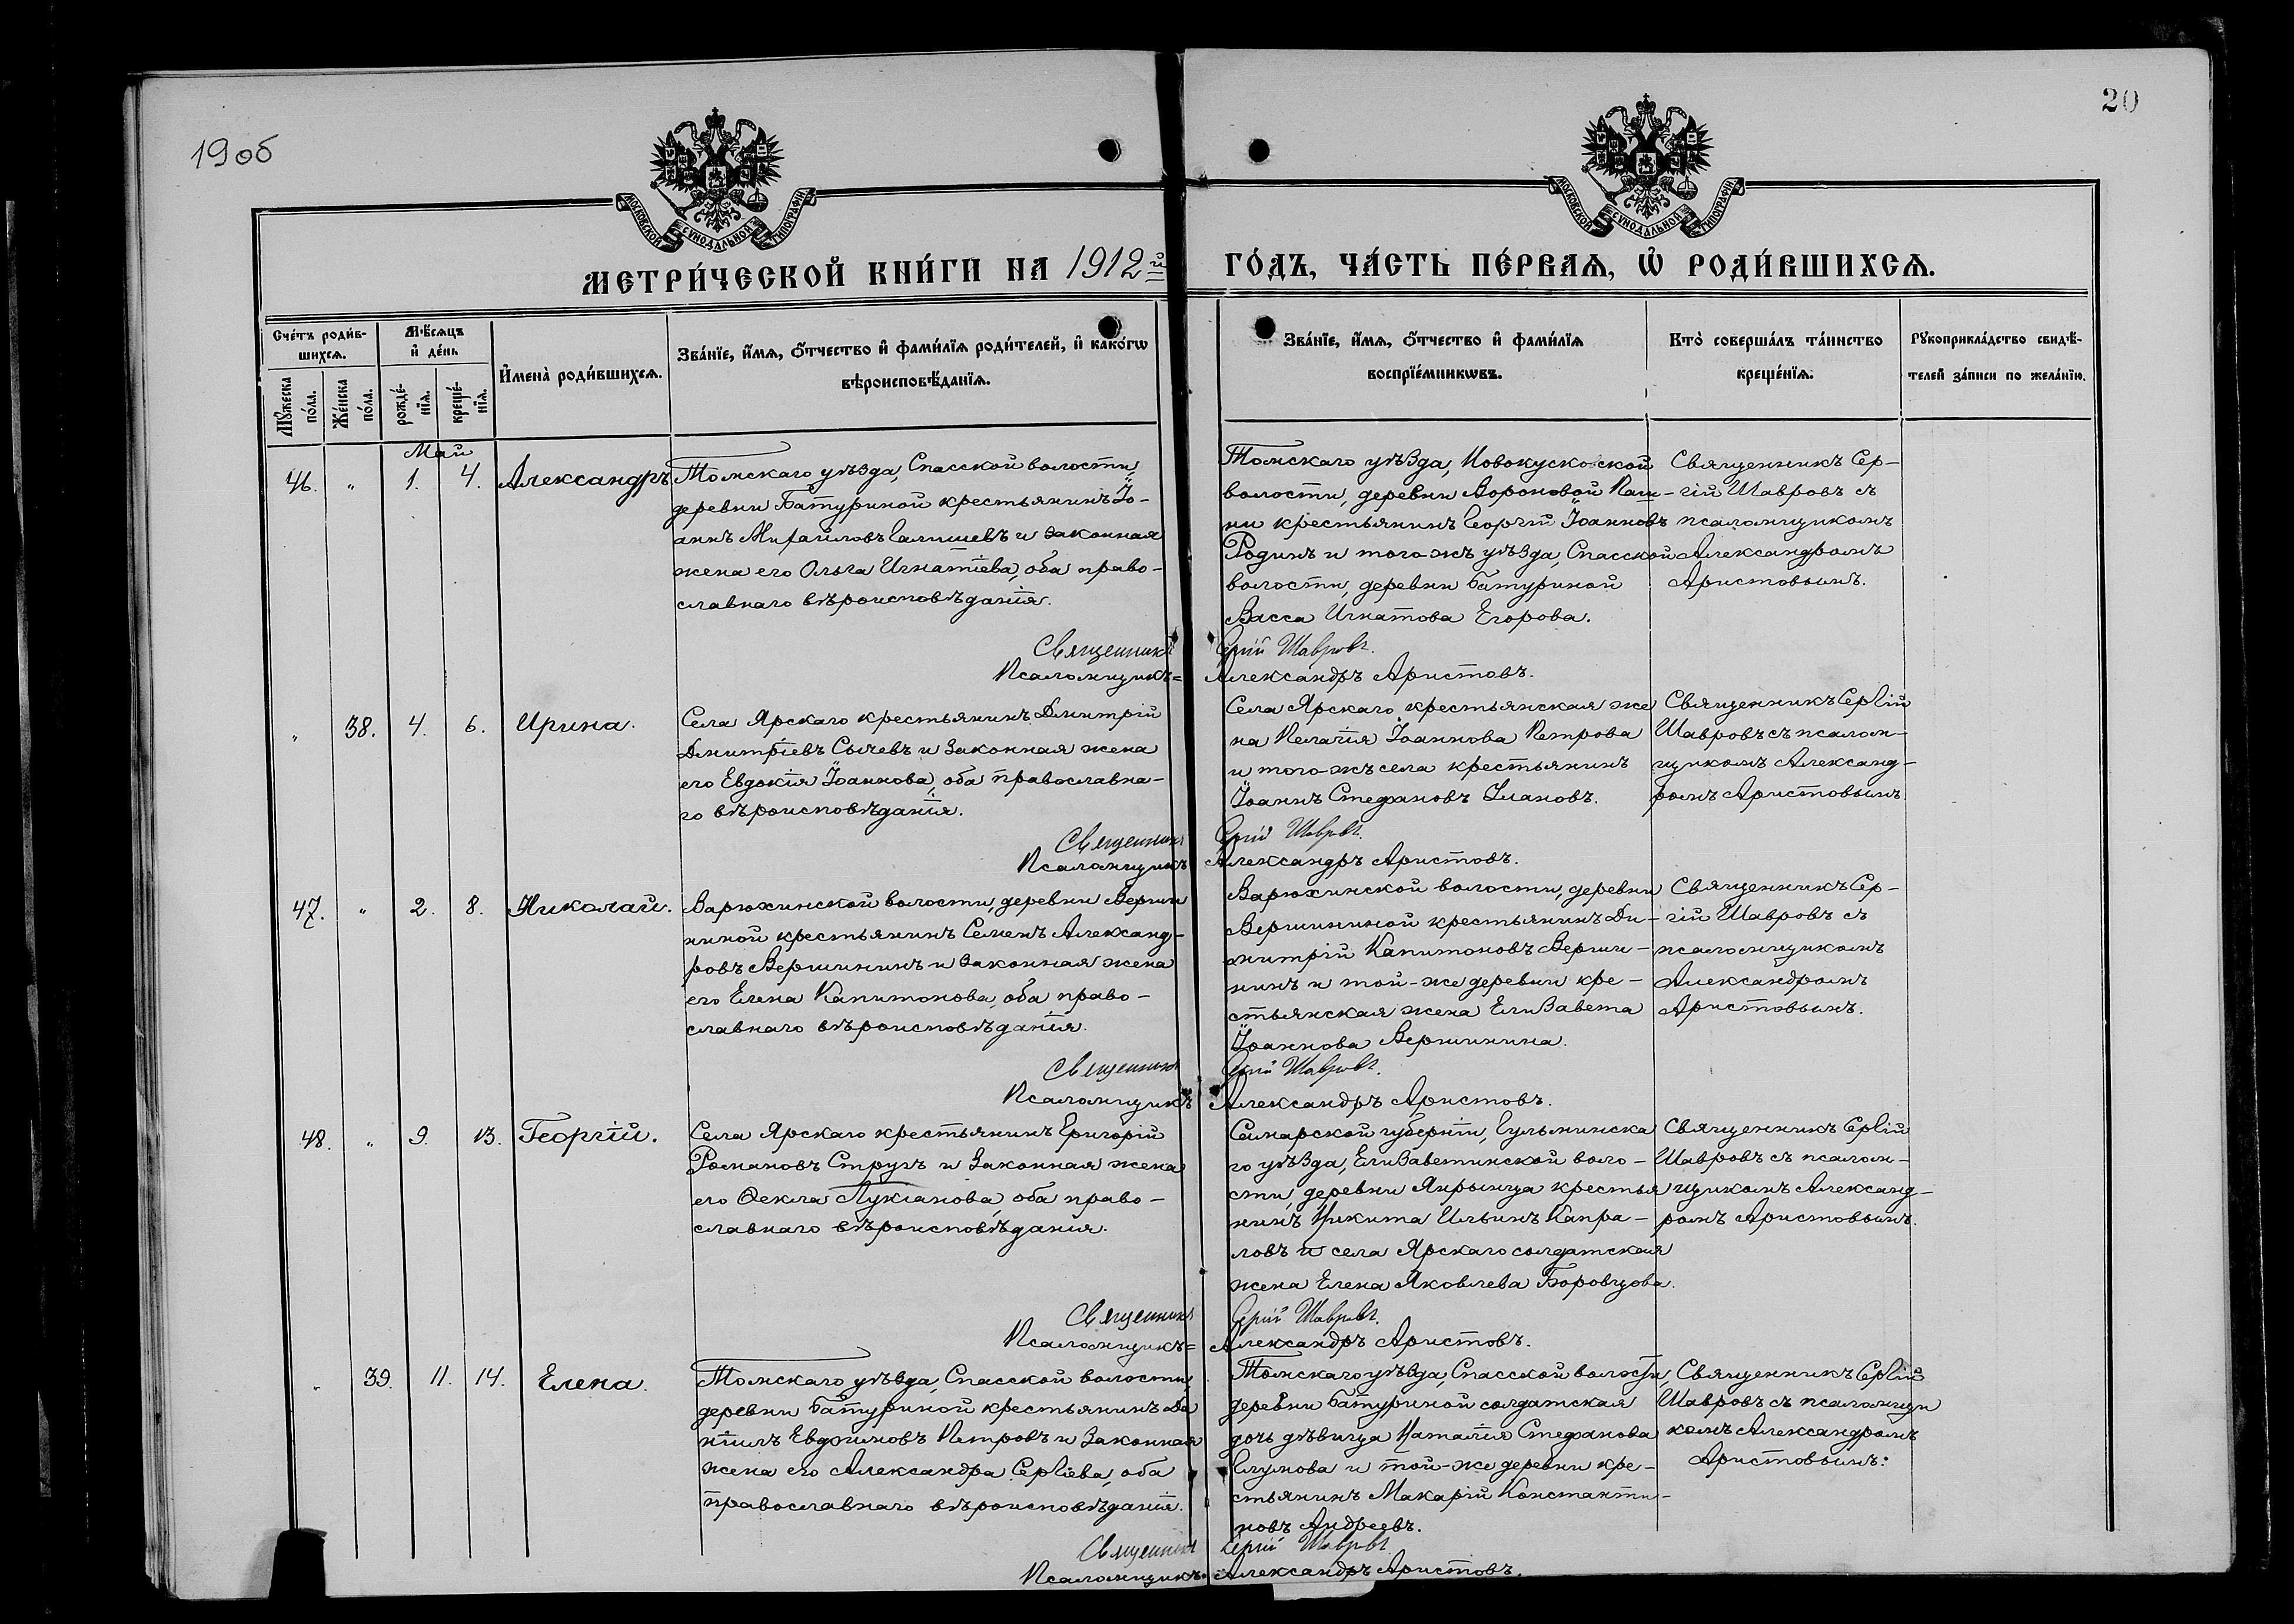 19 об
20
МОСКОВСКОЙ СУНОДАЛЬНОЙ ТИПОГРАФІИ
МОСКОВСКОЙ СУНОДАЛЬНОЙ ТИПОГРАФІИ
МЕТРИ́ЧЕСКОЙ КНИ́ГИ НА 1912й
ГО́ДЪ, ЧА́СТЬ ПЕ́РВАѦ, Ѡ РОДИ́ВШИХСѦ.
Сче́тъ роди́в-
шихсѧ.
Мꙋжеска по́ла.
Же́нска по́ла.
Мѣ́сѧцъ
и де́нь
рожде́-
нїѧ.
креще́-
нїѧ.
Имена̀ роди́вшихсѧ.
Зва́нїе, и́мѧ, о́тчество и фами́лїѧ роди́телей, и како́гѡ
вѣроисповѣ́данїѧ.
Зва́нїе, и́мѧ, о́тчество и фами́лїѧ
воспрїе́мникѡвъ.
Кто̀ соверша́лъ та́инство
креще́нїѧ.
Рꙋкоприкла́дство свидѣ́-
телей за́писи по жела́нїю.
Май
46. " 1. 4. Александръ
Томскаго уѣзда, Спасской волости,
деревни Батуриной крестьянинъ Іо-
аннъ Михайловъ Галишевъ и законная
жена его Ольга Игнатіева, оба право-
славнаго вѣроисповѣданія.
Томскаго уѣзда, Новокусковской
волости, деревни Вороновой Паш-
ни крестьянинъ Георгій Іоанновъ
Родинъ и того-жъ уѣзда, Спасской
волости, деревни Батуриной
Васса Игнатова Егорова.
Священникъ Сер-
гій Шавровъ съ
псаломщикомъ
Александромъ
Аристовымъ.
Священникъ Сергій Шавровъ.
Псаломщикъ= Александръ Аристовъ.
" 38. 4. 6. Ирина.
Села Ярскаго крестьянинъ Димитрій
Димитріевъ Сычевъ и законная жена
его Евдокія Іоаннова, оба православна-
го вѣроисповѣданія.
Села Ярскаго крестьянская же
на Пелагія Іоаннова Петрова
и того-жъ села крестьянинъ
Іоаннъ Стефановъ Улановъ.
Священникъ Сергій
Шавровъ съ псалом-
щикомъ Александ-
ромъ Аристовымъ
Священникъ Сергій Шавровъ.
Псаломщикъ Александръ Аристовъ.
47. " 2. 8. Николай.
Варюхинской волости, деревни Верши
ниной крестьянинъ Семенъ Александ-
ровъ Вершининъ и законная жена
его Елена Капитонова, оба право-
славнаго вѣроисповѣданія.
Варюхинской волости, деревни
Вершининой крестьянинъ Ди-
митрій Капитоновъ Верши-
нинъ и той-же деревни кре-
стьянская жена Елизавета
Іоаннова Вершинина.
Священникъ Сер-
гій Шавровъ съ
псаломщикомъ
Александромъ
Аристовымъ.
Священникъ Сергій Шавровъ.
Псаломщикъ Александръ Аристовъ.
48. " 9. 13. Георгій.
Села Ярскаго крестьянинъ Григорій
Романовъ Стругъ и законная жена
его Ѳекла Лукіанова, оба право-
славнаго вѣроисповѣданія.
Самарской губерніи, Гульминска
го уѣзда, Елизаветинской воло-
сти, деревни Янрынца крестья
нинъ Никита Ильинъ Капра-
ловъ и села Ярскаго солдатская
жена Елена Яковлева Боровцова.
Священникъ Сергій
Шавровъ съ псалом-
щикомъ Александ-
ромъ Аристовымъ.
Священникъ Сергій Шавровъ.
Псаломщикъ= Александръ Аристовъ.
" 39. 11. 14. Елена.
Томскаго уѣзда, Спасской волости,
деревни Батуриной крестьянинъ Да
ніилъ Евфимовъ Петровъ и законная
жена его Александра Сергіева, оба
православнаго вѣроисповѣданія.
Томскаго уѣзда, Спасской волости,
деревни Батуриной солдатская
дочь дѣвица Наталія Стефанова
Глумова и той-же деревни кре-
стьянинъ Макарій Константи-
новъ Андреевъ.
Священникъ Сергій
Шавровъ съ псаломщи
комъ Александромъ
Аристовымъ:
Священникъ Сергій Шавровъ
Псаломщикъ Александръ Аристовъ.